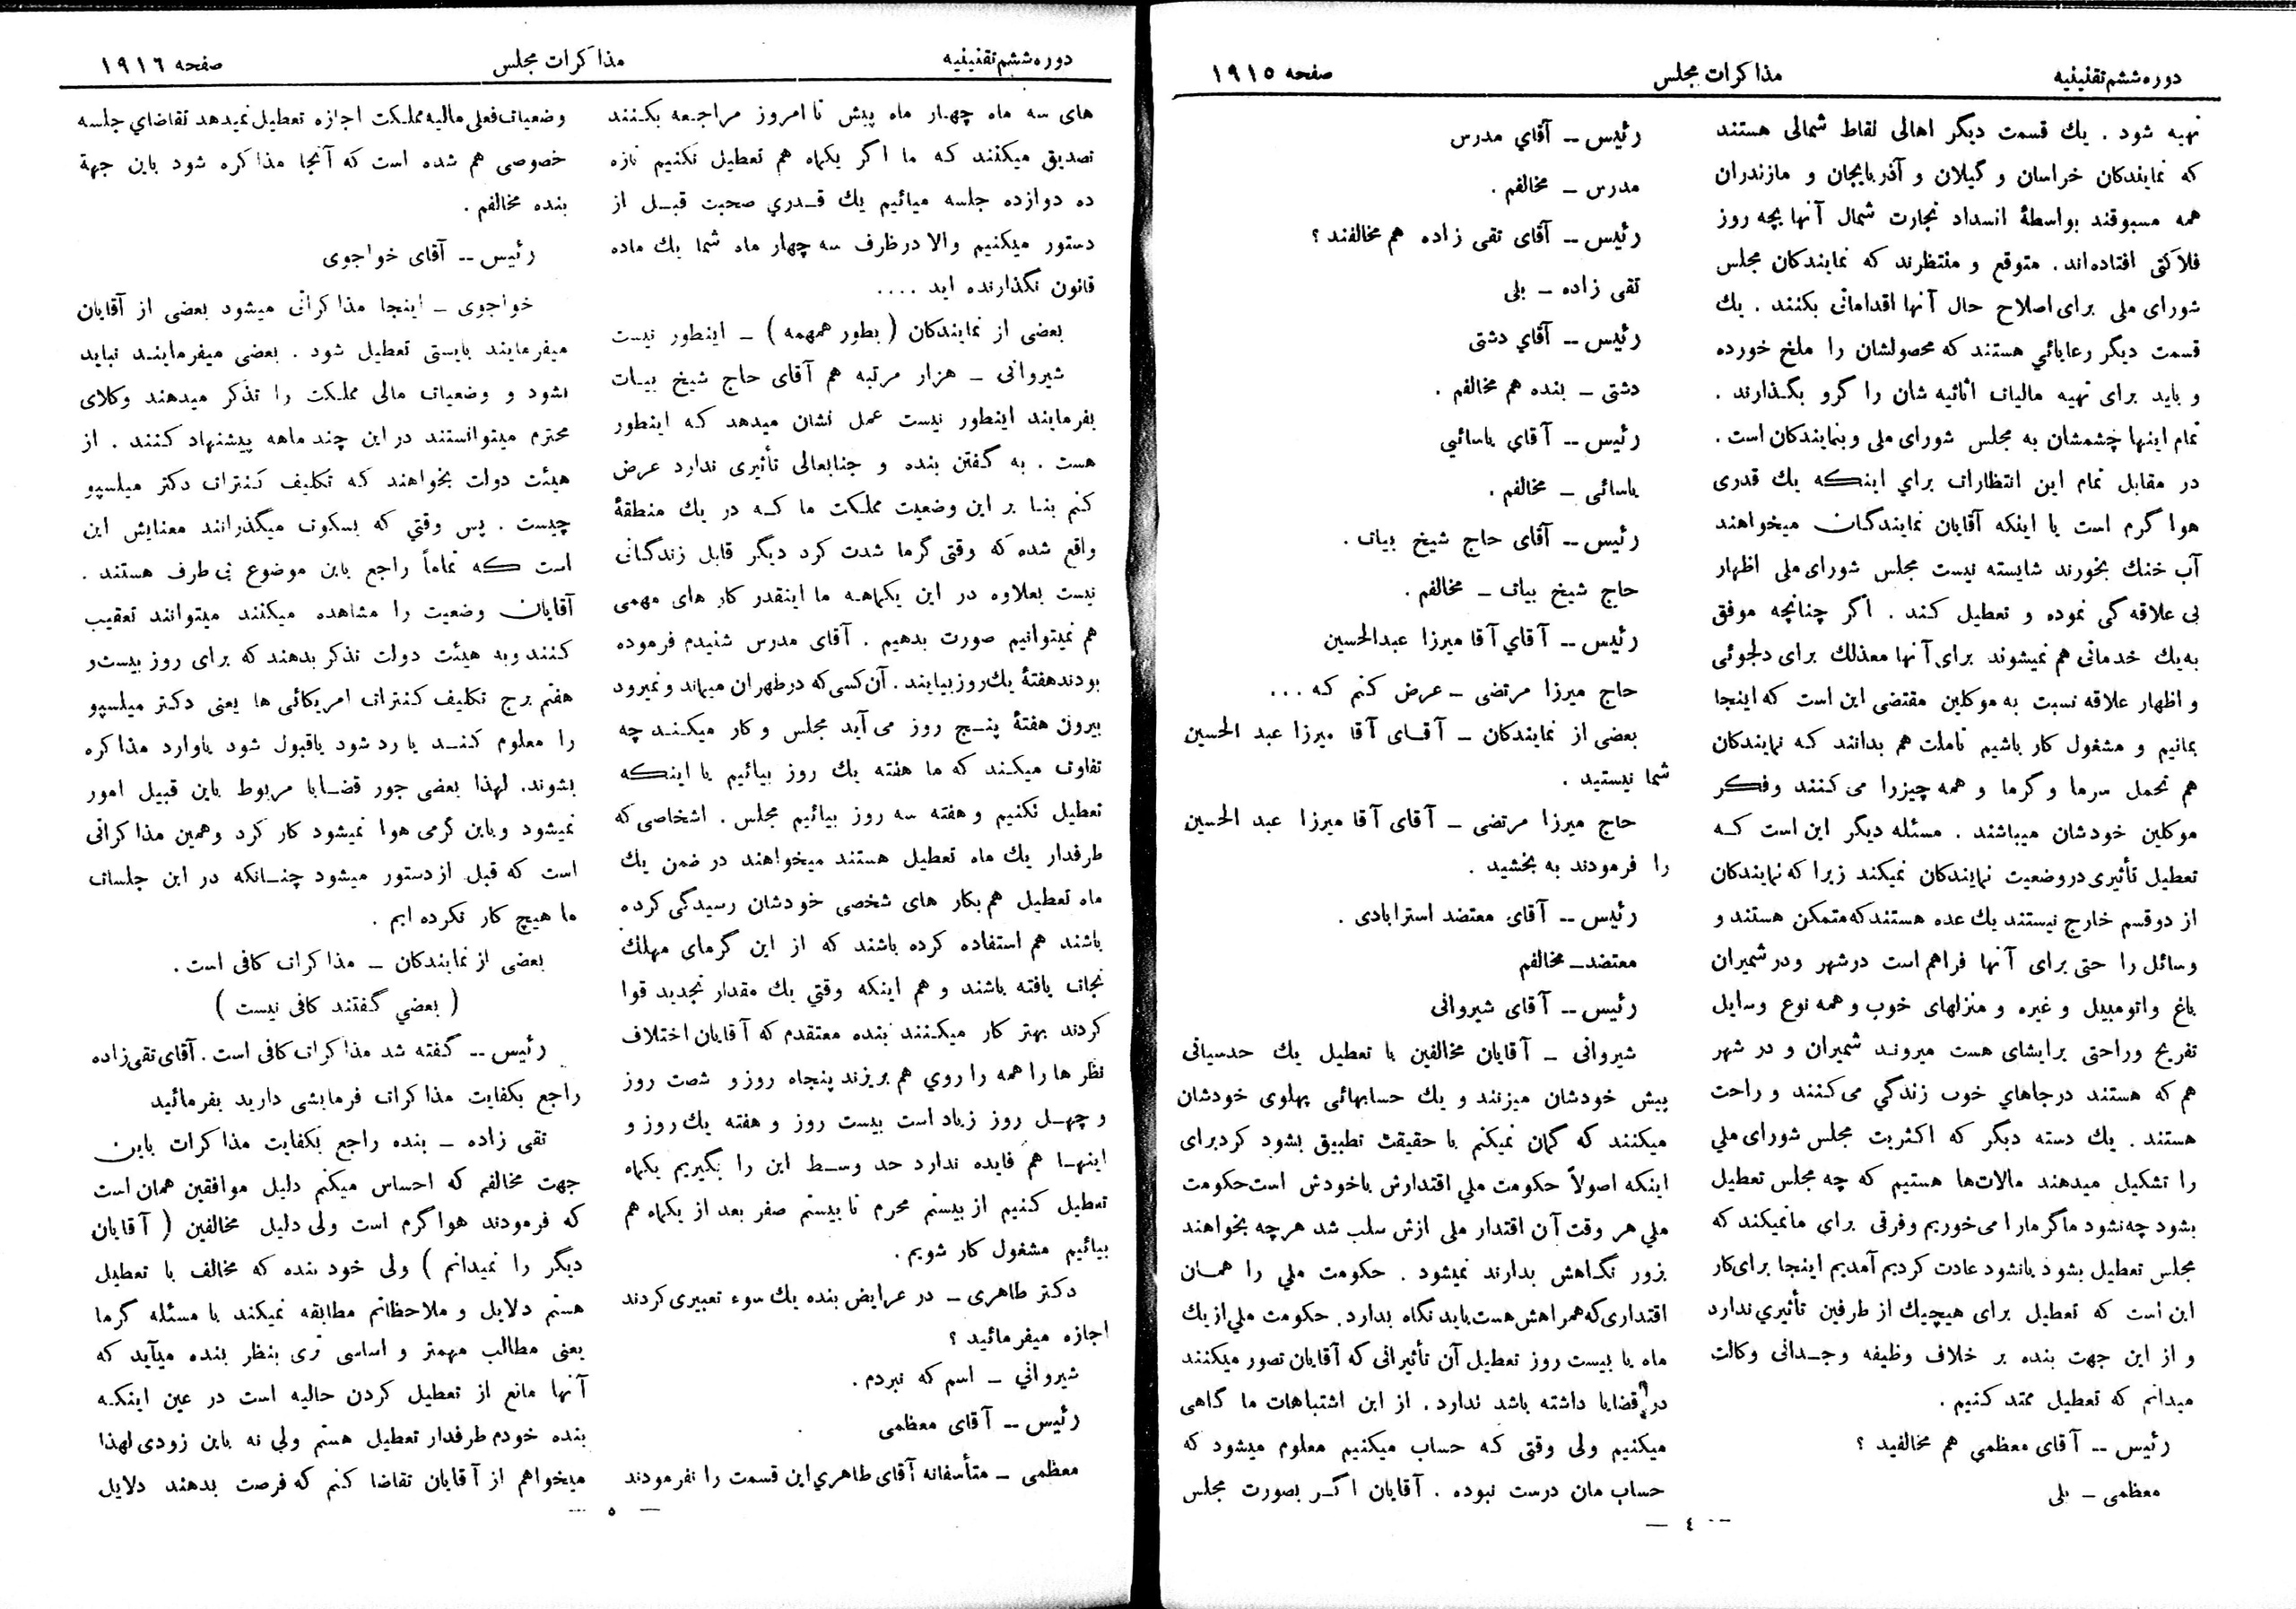 دوره ششم تقنینیه
مذاکرات مجلس
صفحه ۱۹۱۵
تهیه شود . یك قسمت دیگر اهالی نقاط شمالی هستند
که نمایندکان خراسان و گیلان و آذربایجان و مازندران
همه مسبوقند بواسطهٔ انسداد تجارت شمال آنها بچه روز
فلاکتی افتاده‌اند . متوقع و منتظرند که نمایندکان مجلس
شورای ملی برای اصلاح حال آنها اقداماتی بکنند . یك
قسمت دیگر رعایائي هستند که محصولشان را ملخ خورده
و باید برای تهیه مالیات اثاثیه شان را گرو بگذارند .
تمام اینها چشمشان به مجلس شورای ملی و بنمایندکان است .
در مقابل تمام این انتظارات براي اینکه یك قدری
هوا گرم است یا اینکه آقایان نمایندگان میخواهند
آب خنك بخورند شایسته نیست مجلس شورای ملی اظهار
بی علاقه گی نموده و تعطیل کند . اگر چنانچه موفق
به‌یك خدماتی هم نمیشوند برای آنها معذلك برای دلجوئی
و اظهار علاقه نسبت به موکلین مقتضی این است که اینجا
بمانیم و مشغول کار باشیم تاملت هم بدانند که نمایندکان
هم تحمل سرما و گرما و همه چیزرا می کنند وفکر
موکلین خودشان میباشند . مسئله دیگر این است که
تعطیل تأثیری در وضعیت نمایندکان نمیکند زیرا که نمایندکان
از دو قسم خارج نیستند یك عده هستند که متمکن هستند و
وسائل را حتی برای آنها فراهم است درشهر ودر شمیران
باغ واتومبیل و غیره و منزلهای خوب و همه نوع وسایل
تفریح وراحتی برایشای هست میروند شمیران و در شهر
هم که هستند درجاهاي خوب زندگي می کنند و راحت
هستند . یك دسته دیگر که اکثریت مجلس شورای ملي
را تشکیل میدهند مالات‌ها هستیم که چه مجلس تعطیل
بشود چه نشود ماگرمارا می خوریم وفرقی برای مانمیکند که
مجلس تعطیل بشود یانشود عادت کردیم آمدیم اینجا برای کار
این است که تعطیل برای هیچیك از طرفین تأثیري ندارد
و از این جهت بنده بر خلاف وظیفه وجدانی وکالت
میدانم که تعطیل ممتد کنیم .
رئیس -- آقای معظمي هم مخالفید ؟
معظمی - بلی
رئیس -- آقاي مدرس
مدرس - مخالفم .
رئیس -- آقای تقی زاده هم مخالفند ؟
تقی زاده - بلی
رئیس -- آقاي دشتی
دشتی - بنده هم مخالفم .
رئیس -- آقاي یاسائیی
یاسائی - مخالفم .
رئیس -- آقای حاج شیخ بیات .
حاج شیخ بیات - مخالفم .
رئیس -- آقاي آقا میرزا عبدالحسین
حاج میرزا مرتضی - عرض کنم که ...
بعضی از نمایندکان - آقای آقا میرزا عبد الحسین
شما نیستید .
حاج میرزا مرتضی - آقای آقا میرزا عبد الحسین
را فرمودند به بخشید .
رئیس -- آقای معتضد استرابادی .
معتضد- مخالفم
رئیس -- آقای شیروانی
شیروانی - آقایان مخالفین با تعطیل یك حدسیاتی
پیش خودشان میزنند و یك حسابهائی پهلوی خودشان
میکنند که گمان نمیکنم با حقیقت تطبیق بشود کرد برای
اینکه اصولاً حکومت ملي اقتدارش باخودش است حکومت
ملي هر وقت آن اقتدار ملی ازش سلب شد هرچه بخواهند
بزور نگاهش بدارند نمیشود . حکومت ملي را همان
اقتداری که همراهش هست باید نگاه بدارد . حکومت ملي از یك
ماه یا بیست روز تعطیل آن تأثیراتی که آقایان تصور میکنند
در قضایا داشته باشد ندارد . از این اشتباهات ما گاهی
میکنیم ولی وقتی که حساب میکنیم معلوم میشود که
حساب مان درست نبوده . آقایان اگر بصورت مجلس
— ٤ --
دوره ششم تقنینیه
مذاکرات مجلس
صفحه ۱۹۱٦
های سه ماه چهار ماه پیش تا امروز مراجعه بکنند
تصدیق میکنند که ما اگر یکماه هم تعطیل نکنیم تازه
ده دوازده جلسه میائیم یك قدري صحبت قبل از
دستور میکنیم والا در ظرف سه چهار ماه شما یك ماده
قانون نگذارنده اید ....
بعضی از نمایندکان ( بطور همهمه ) - اینطور نیست
شیروانی - هزار مرتبه هم آقای حاج شیخ بیات
بفرمایند اینطور نیست عمل نشان میدهد که اینطور
هست . به گفتن بنده و جنابعالی تأثیری ندارد عرض
کنم بنا بر این وضعیت مملکت ما که در یك منطقهٔ
واقع شده که وقتی گرما شدت کرد دیگر قابل زندگانی
نیست بعلاوه در این یکماهه ما اینقدر کار های مهمی
هم نمیتوانیم صورت بدهیم . آقای مدرس شنیدم فرموده
بودند هفتهٔ یك روز بیایند . آن کسی که در طهران میماند و نمیرود
بیرون هفتهٔ پنج روز می آید مجلس و کار میکند چه
تفاوت میکند که ما هفته یك روز بیائیم یا اینکه
تعطیل نکنیم و هفته سه روز بیائیم مجلس . اشخاصی که
طرفدار یك ماه تعطیل هستند میخواهند در ضمن یك
ماه تعطیل هم بکار های شخصی خودشان رسیدگی کرده
باشند هم استفاده کرده باشند که از این گرمای مهلك
نجات یافته باشند و هم اینکه وقتي یك مقدار تجدید قوا
کردند بهتر کار میکنند بنده معتقدم که آقایان اختلاف
نظر ها را همه را روي هم بریزند پنجاه روز و شصت روز
و چهل روز زیاد است بیست روز و هفته یك روز و
اینها هم فایده ندارد حد وسط این را بگیریم یکماه
تعطیل کنیم از بیستم محرم تا بیستم صفر بعد از یکماه هم
بیائیم مشغول کار شویم .
دکتر طاهری - در عرایض بنده یك سوء تعبیری کردند
اجازه میفرمائید ؟
شیرواني - اسم که نبردم .
رئیس -- آقای معظمی
معظمی - متأسفانه آقای طاهري این قسمت را نفرمودند
وضعیات فعلی مالیه مملکت اجازه تعطیل نمیدهد تقاضاي جلسه
خصوصی هم شده است که آنجا مذاکره شود باین جهة
بنده مخالفم .
رئیس -- آقای خواجوی
خواجوی - اینجا مذاکراتی میشود بعضی از آقایان
میفرمایند بایستی تعطیل شود . بعضی میفرمایند نباید
بشود و وضعیات مالی مملکت را تذکر میدهند وکلای
محترم میتوانستند در این چند ماهه پیشنهاد کنند . از
هیئت دولت بخواهند که تکلیف کنترات دکتر میلسپو
چیست . پس وقتي که بسکوت میگذرانند معنایش این
است که تماماً راجع باین موضوع بی طرف هستند .
آقایان وضعیت را مشاهده میکنند میتوانند تعقیب
کنند وبه هیئت دولت تذکر بدهند که برای روز بیست و
هفتم برج تکلیف کنترات امریکائی ها یعنی دکتر میلسپو
را معلوم کنند یا رد شود یاقبول شود یاوارد مذاکره
بشوند. لهذا بعضی جور قضایا مربوط باین قبیل امور
نمیشود و باین گرمی هوا نمیشود کار کرد وهمین مذاکراتی
است که قبل از دستور میشود چنانکه در این جلسات
ما هیچ کار نکرده ایم .
بعضی از نمایندکان - مذاکرات کافی است .
( بعضي گفتند کافی نیست )
رئیس -- گفته شد مذاکرات کافی است . آقای تقی زاده
راجع بکفایت مذاکرات فرمایشی دارید بفرمائید
تقی زاده - بنده راجع بکفایت مذاکرات باین
جهت مخالفم که احساس میکنم دلیل موافقین همان است
که فرمودند هوا گرم است ولی دلیل مخالفین ( آقایان
دیگر را نمیدانم ) ولی خود بنده که مخالف با تعطیل
هستم دلایل و ملاحظاتم مطابقه نمیکند با مسئله گرما
یعنی مطالب مهمتر و اساسی تری بنظر بنده میآید که
آنها مانع از تعطیل کردن حالیه است در عین اینکه
بنده خودم طرفدار تعطیل هستم ولي نه باین زودی لهذا
میخواهم از آقایان تقاضا کنم که فرصت بدهند دلایل
— ٥ --